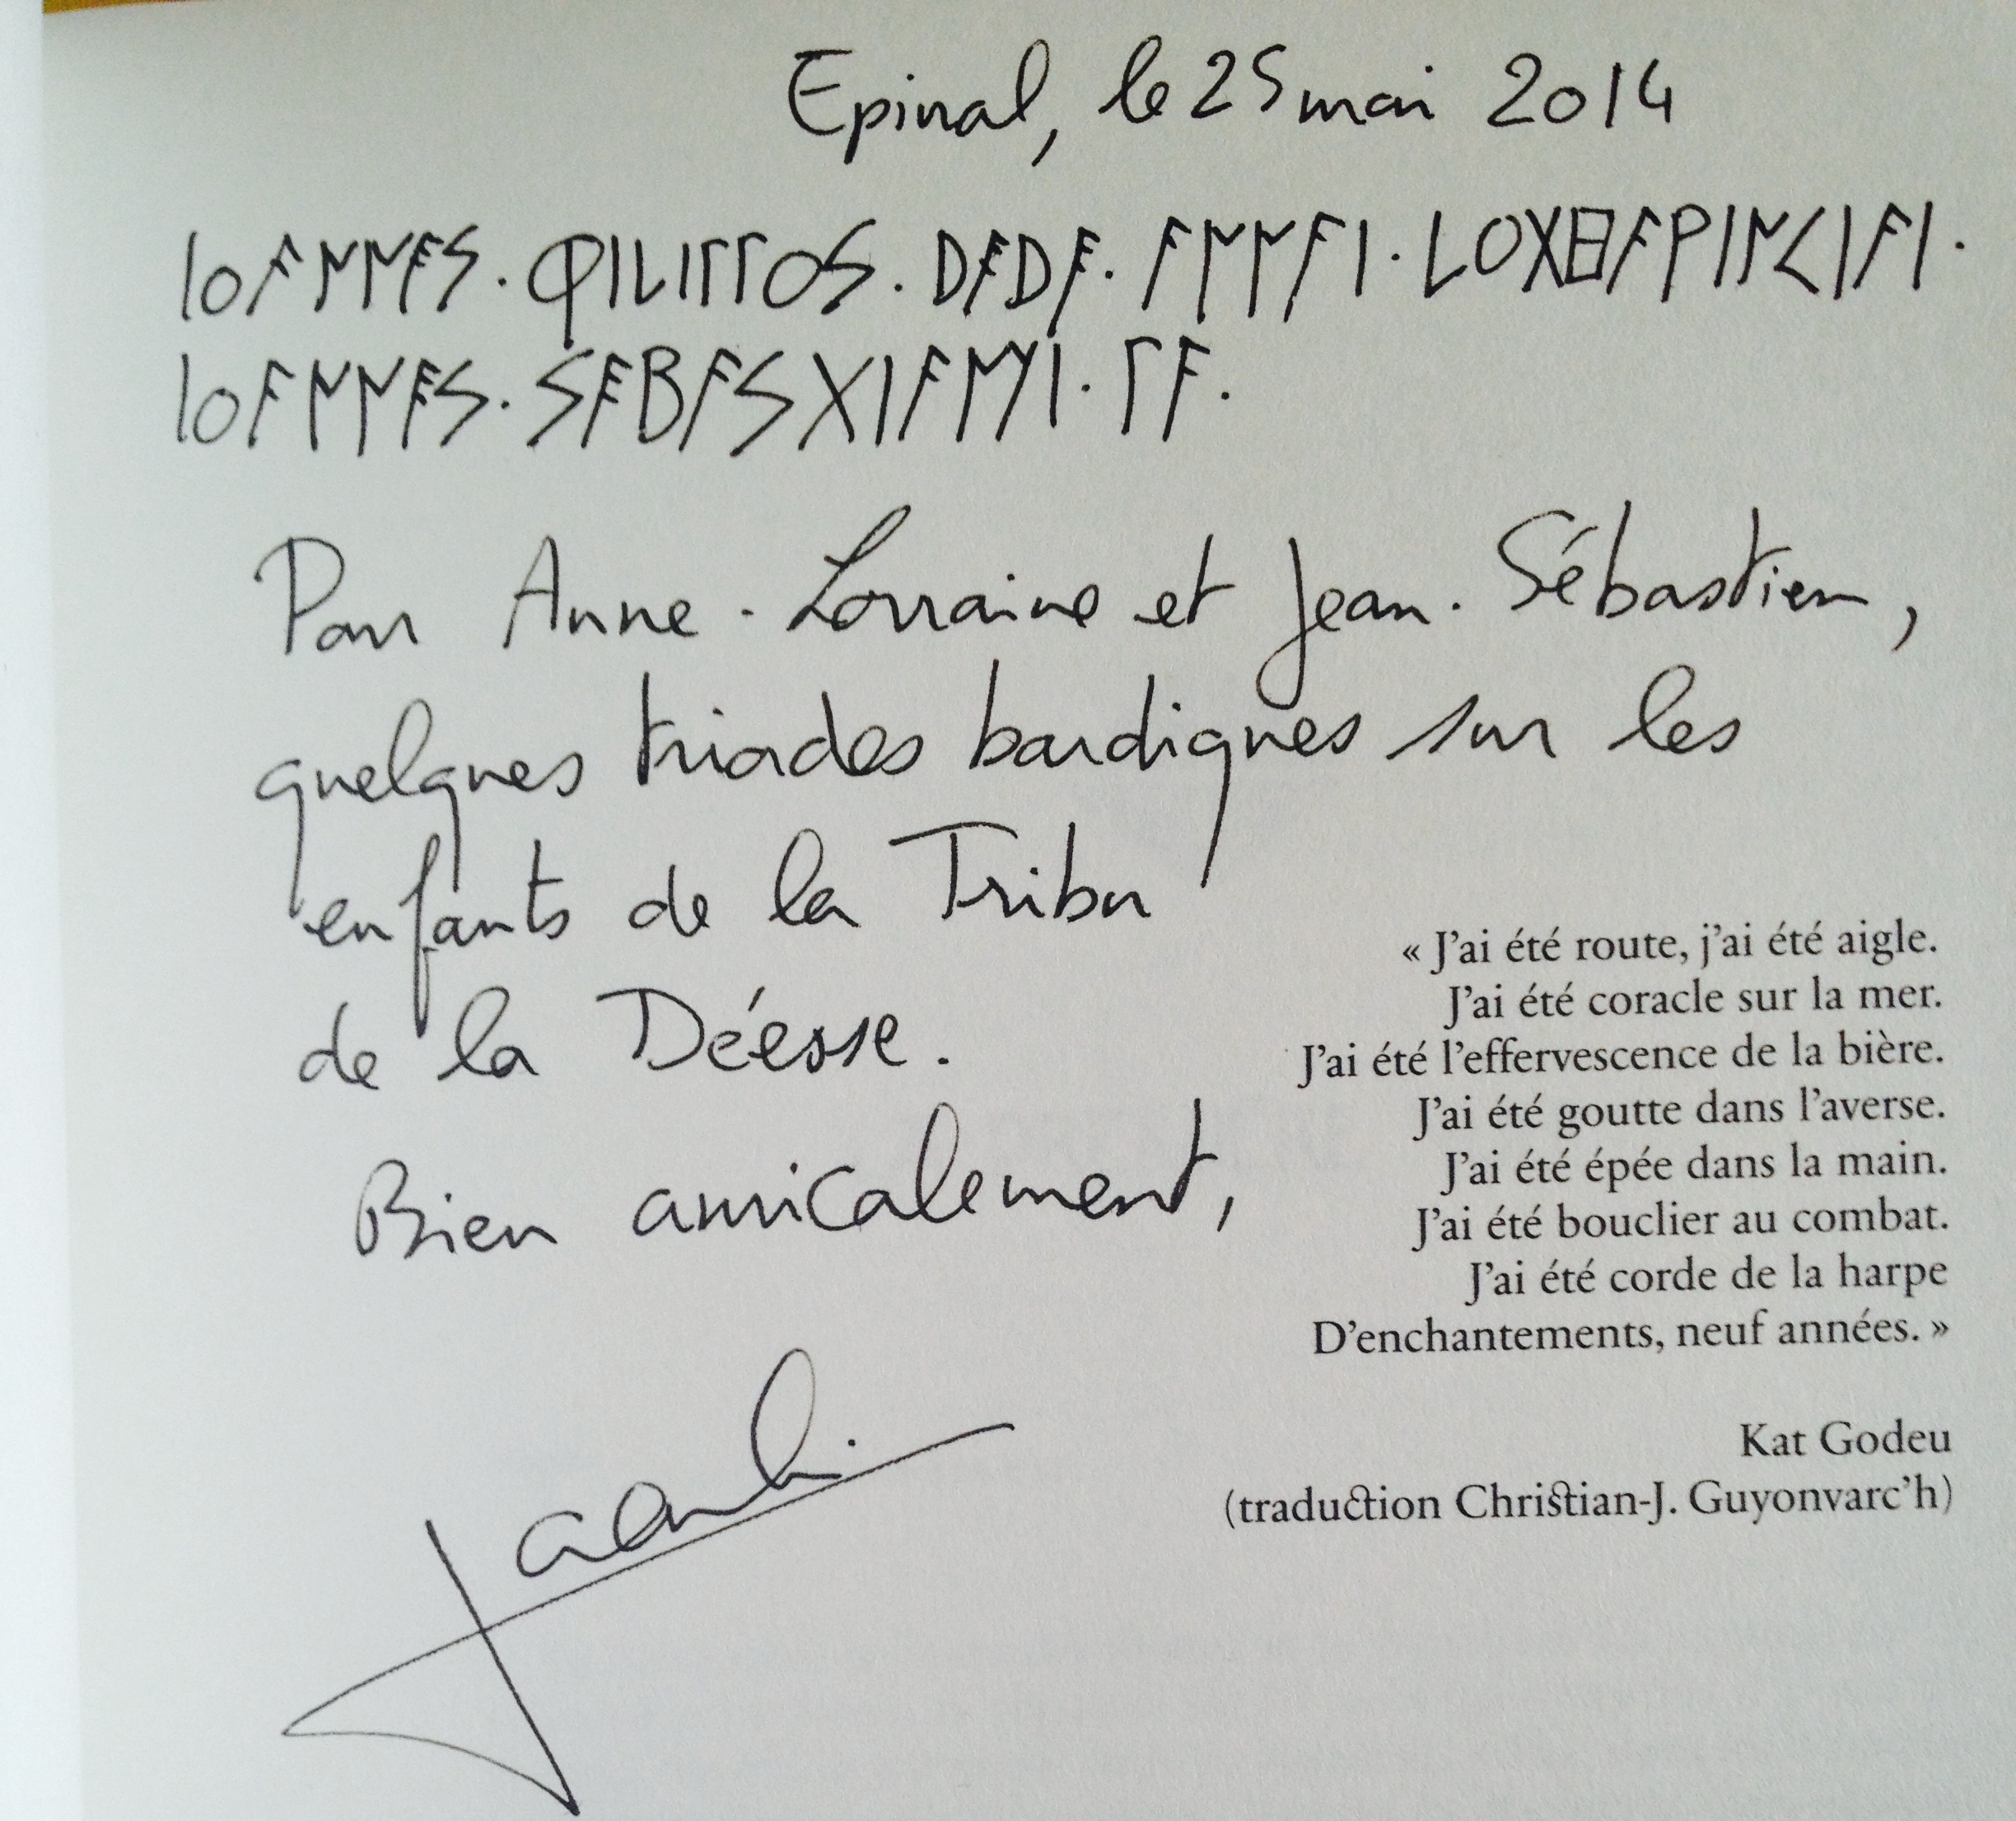 Epinal, le 25 mai 2014
Pour Anne-Lorraine et Jean-Sébastien,
quelques triades bardiques sur les
enfants de la Tribu
de la Déesse.
Bien amicalement,
« J'ai été route, j'ai été aigle.
J'ai été coracle sur la mer.
J'ai été l'effervescence de la bière.
J'ai été goutte dans l'averse.
J'ai été épée dans la main.
J'ai été bouclier au combat.
J'ai été corde de la harpe
D'enchantements, neuf années. »
Kat Godeu
(traduction Christian-J. Guyonvarc'h)